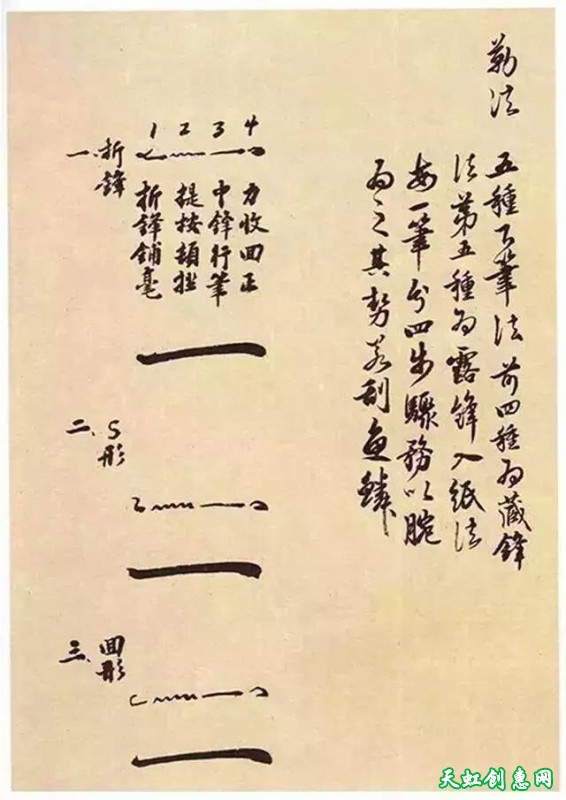 勒法
五種下筆法前四種为藏鋒
法第五種为露鋒入紙法
每一筆分四步驟務以腕
为之其勢若刮魚鱗
1 2 3 4
一、折鋒
折鋒鋪毫
提按頓挫
中鋒行筆
力收回正
二、S形
三、回形
天虹创惠网